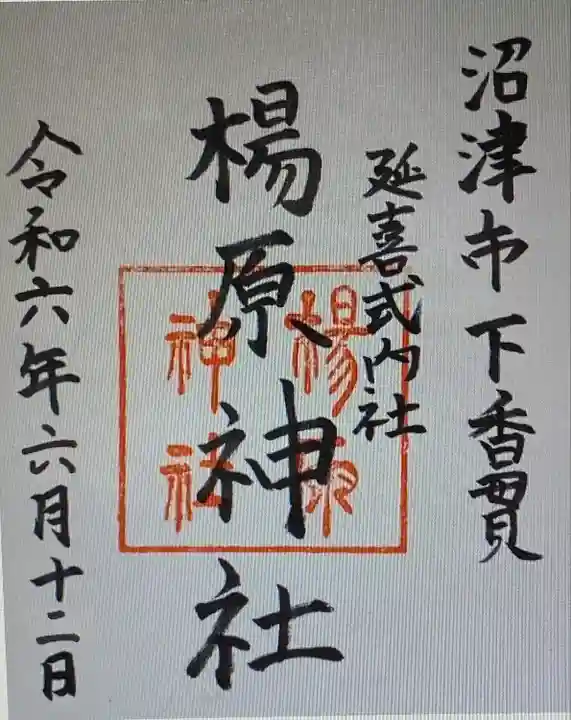 沼津市下香貫
延喜式内社
楊原神社
楊原
神社
令和六年六月十二日